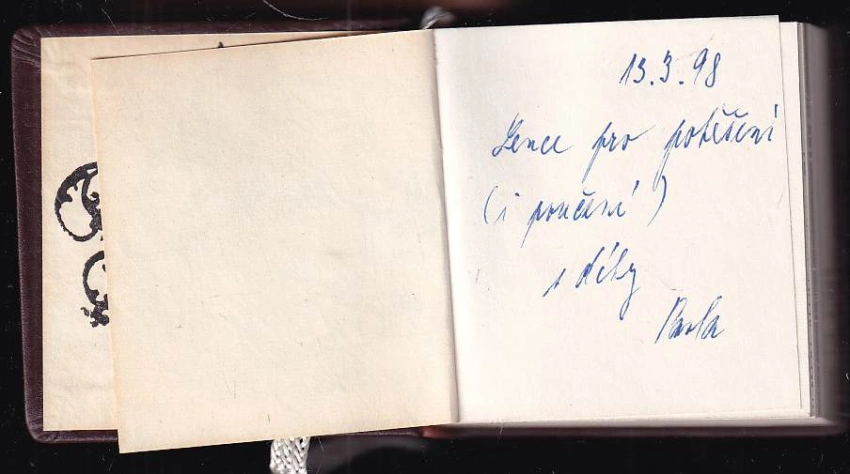 13.3.98
Lence pro potěšení
(i poučení)
s díky
Pavla